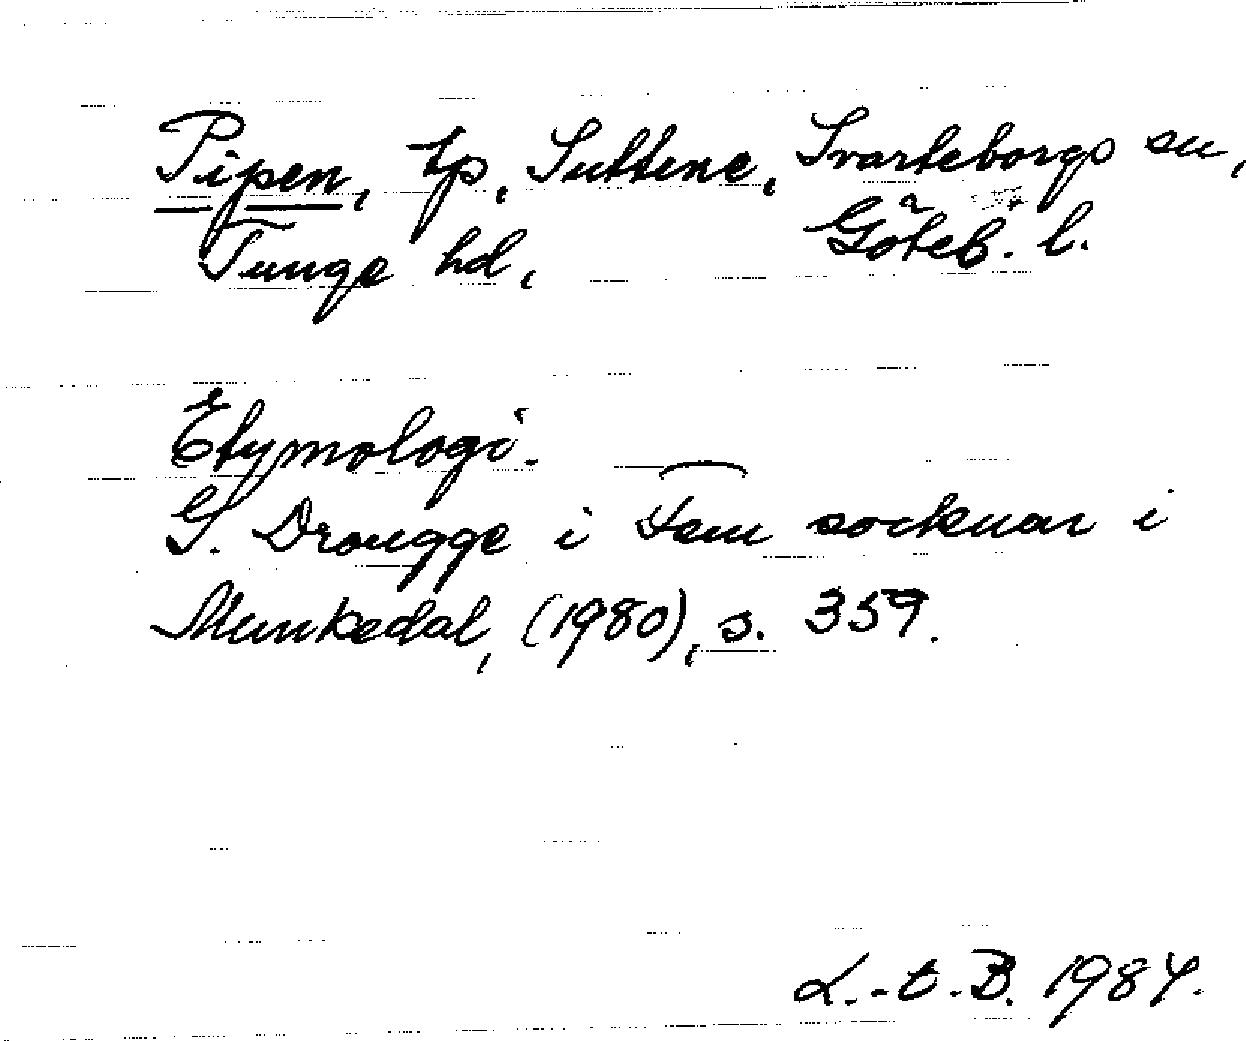 Pipen, tp, Suttene, Svarteborgs sn,
Tunge hd, Göteb. l.
Etymologi.
G. Drougge i Fem socknar i
Munkedal, (1980), s. 359.
L.-t.B. 1984.